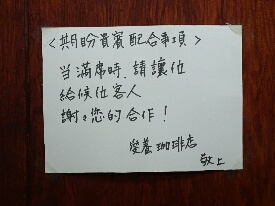 <期盼貴賓配合事項>
当滿席時,請讓位
給候位客人
謝々您的合作!
榮養珈琲店
敬上